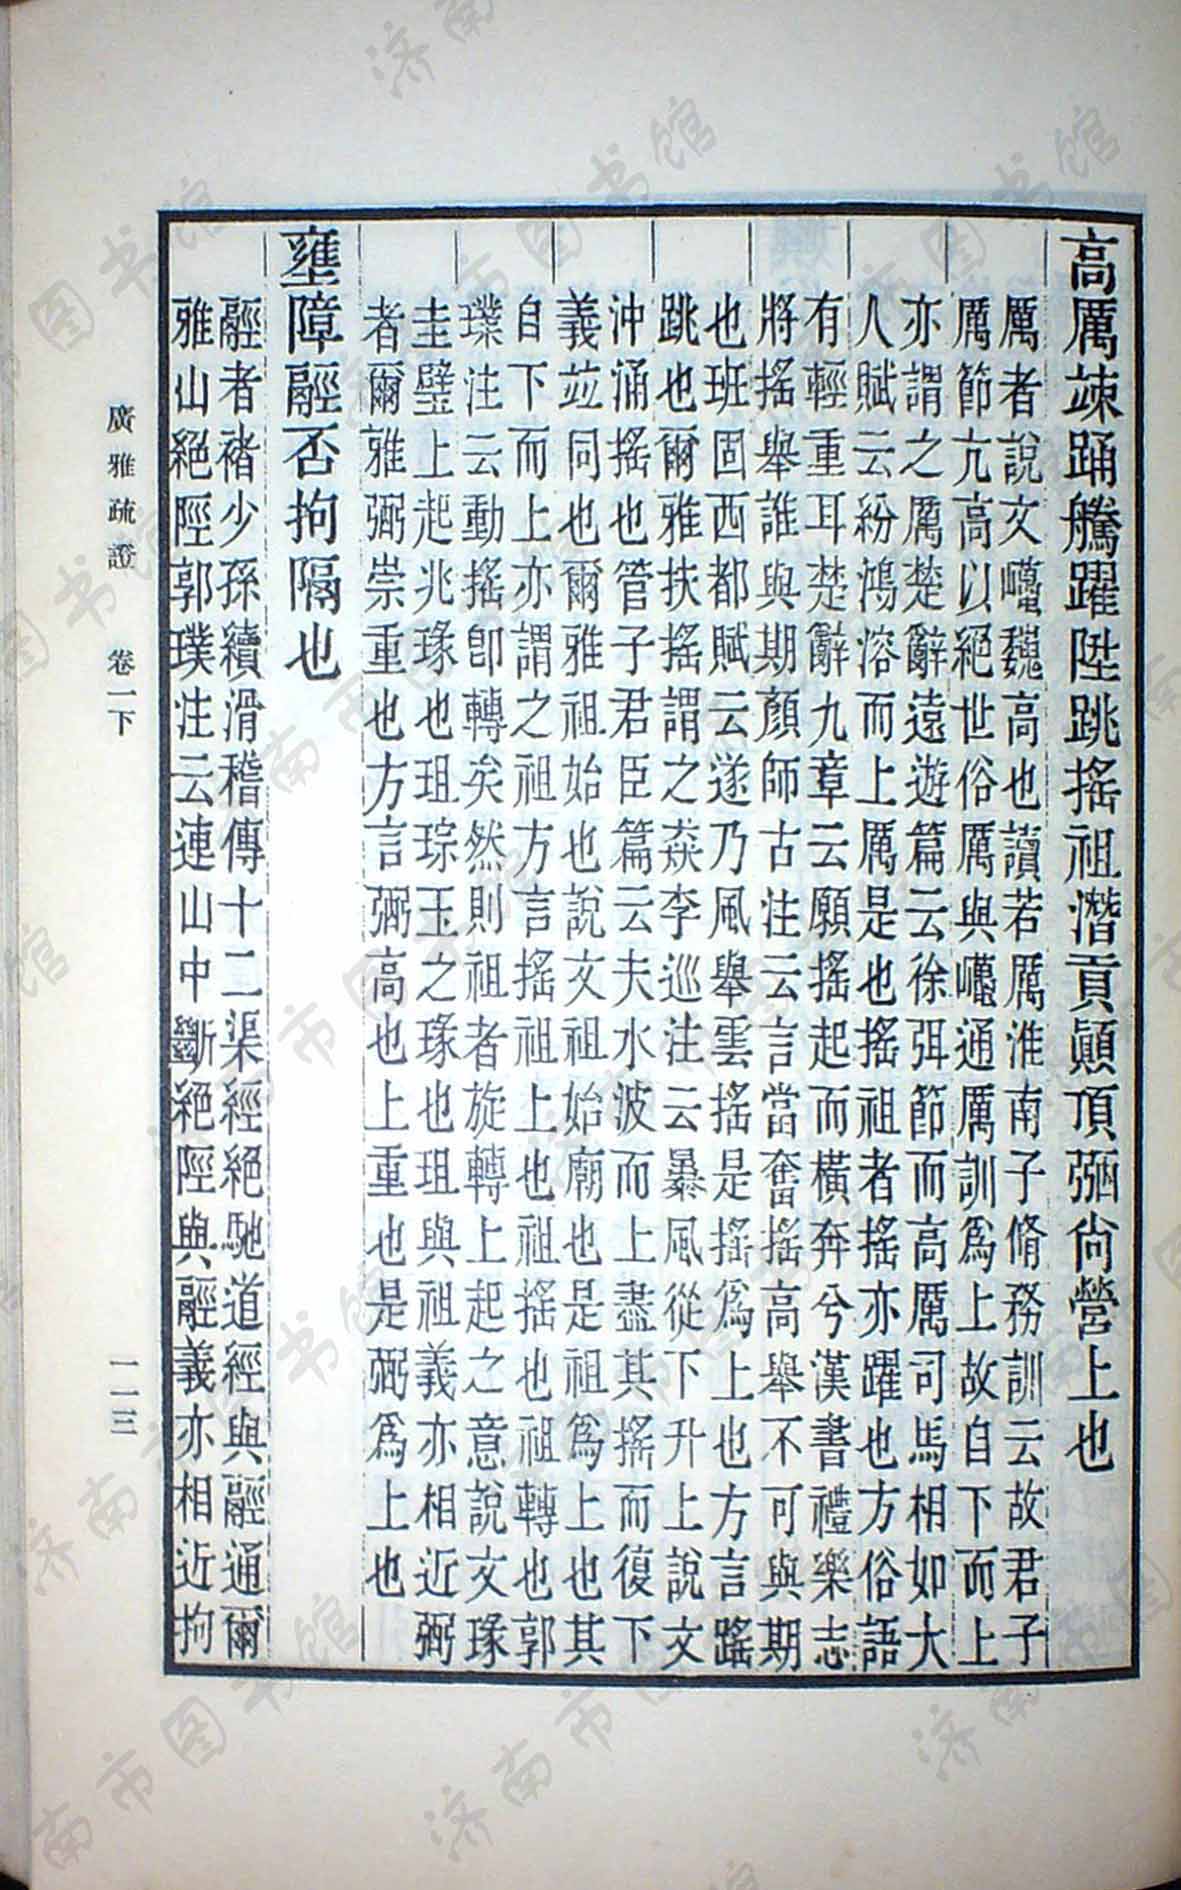 高厲竦踊騰躍陞跳搖祖潛貢顚頂弻尙營上也
厲者說文巁巍高也讀若厲淮南子脩務訓云故君子
厲節亢高以絕世俗厲與巁通厲訓爲上故自下而上
亦謂之厲楚辭遠遊篇云徐弭節而高厲司馬相如大
人賦云紛鴻溶而上厲是也搖祖者搖亦躍也方俗語
有輕重耳楚辭九章云願搖起而橫奔兮漢書禮樂志
將搖舉誰與期顏師古注云言當奮搖高舉不可與期
也班固西都賦云遂乃風舉雲搖是搖爲上也方言䠛
跳也爾雅扶搖謂之猋李巡注云暴風從下升上說文
沖涌搖也管子君臣篇云夫水波而上盡其搖而復下
義竝同也爾雅祖始也說文祖始廟也是祖爲上也其
自下而上亦謂之祖方言搖祖上也祖搖也祖轉也郭
璞注云動搖卽轉矣然則祖者旋轉上起之意說文瑑
圭璧上起兆瑑也珇琮玉之瑑也珇與祖義亦相近弼
者爾雅弼崇重也方言弼高也上重也是弼爲上也
壅障䡖否拘隔也
䡖者褚少孫續滑稽傳十二渠經絕馳道經與䡖通爾
雅山絕陘郭璞注云連山中斷絕陘與䡖義亦相近拘
廣雅疏證　卷一下　一一三
济南市图书馆